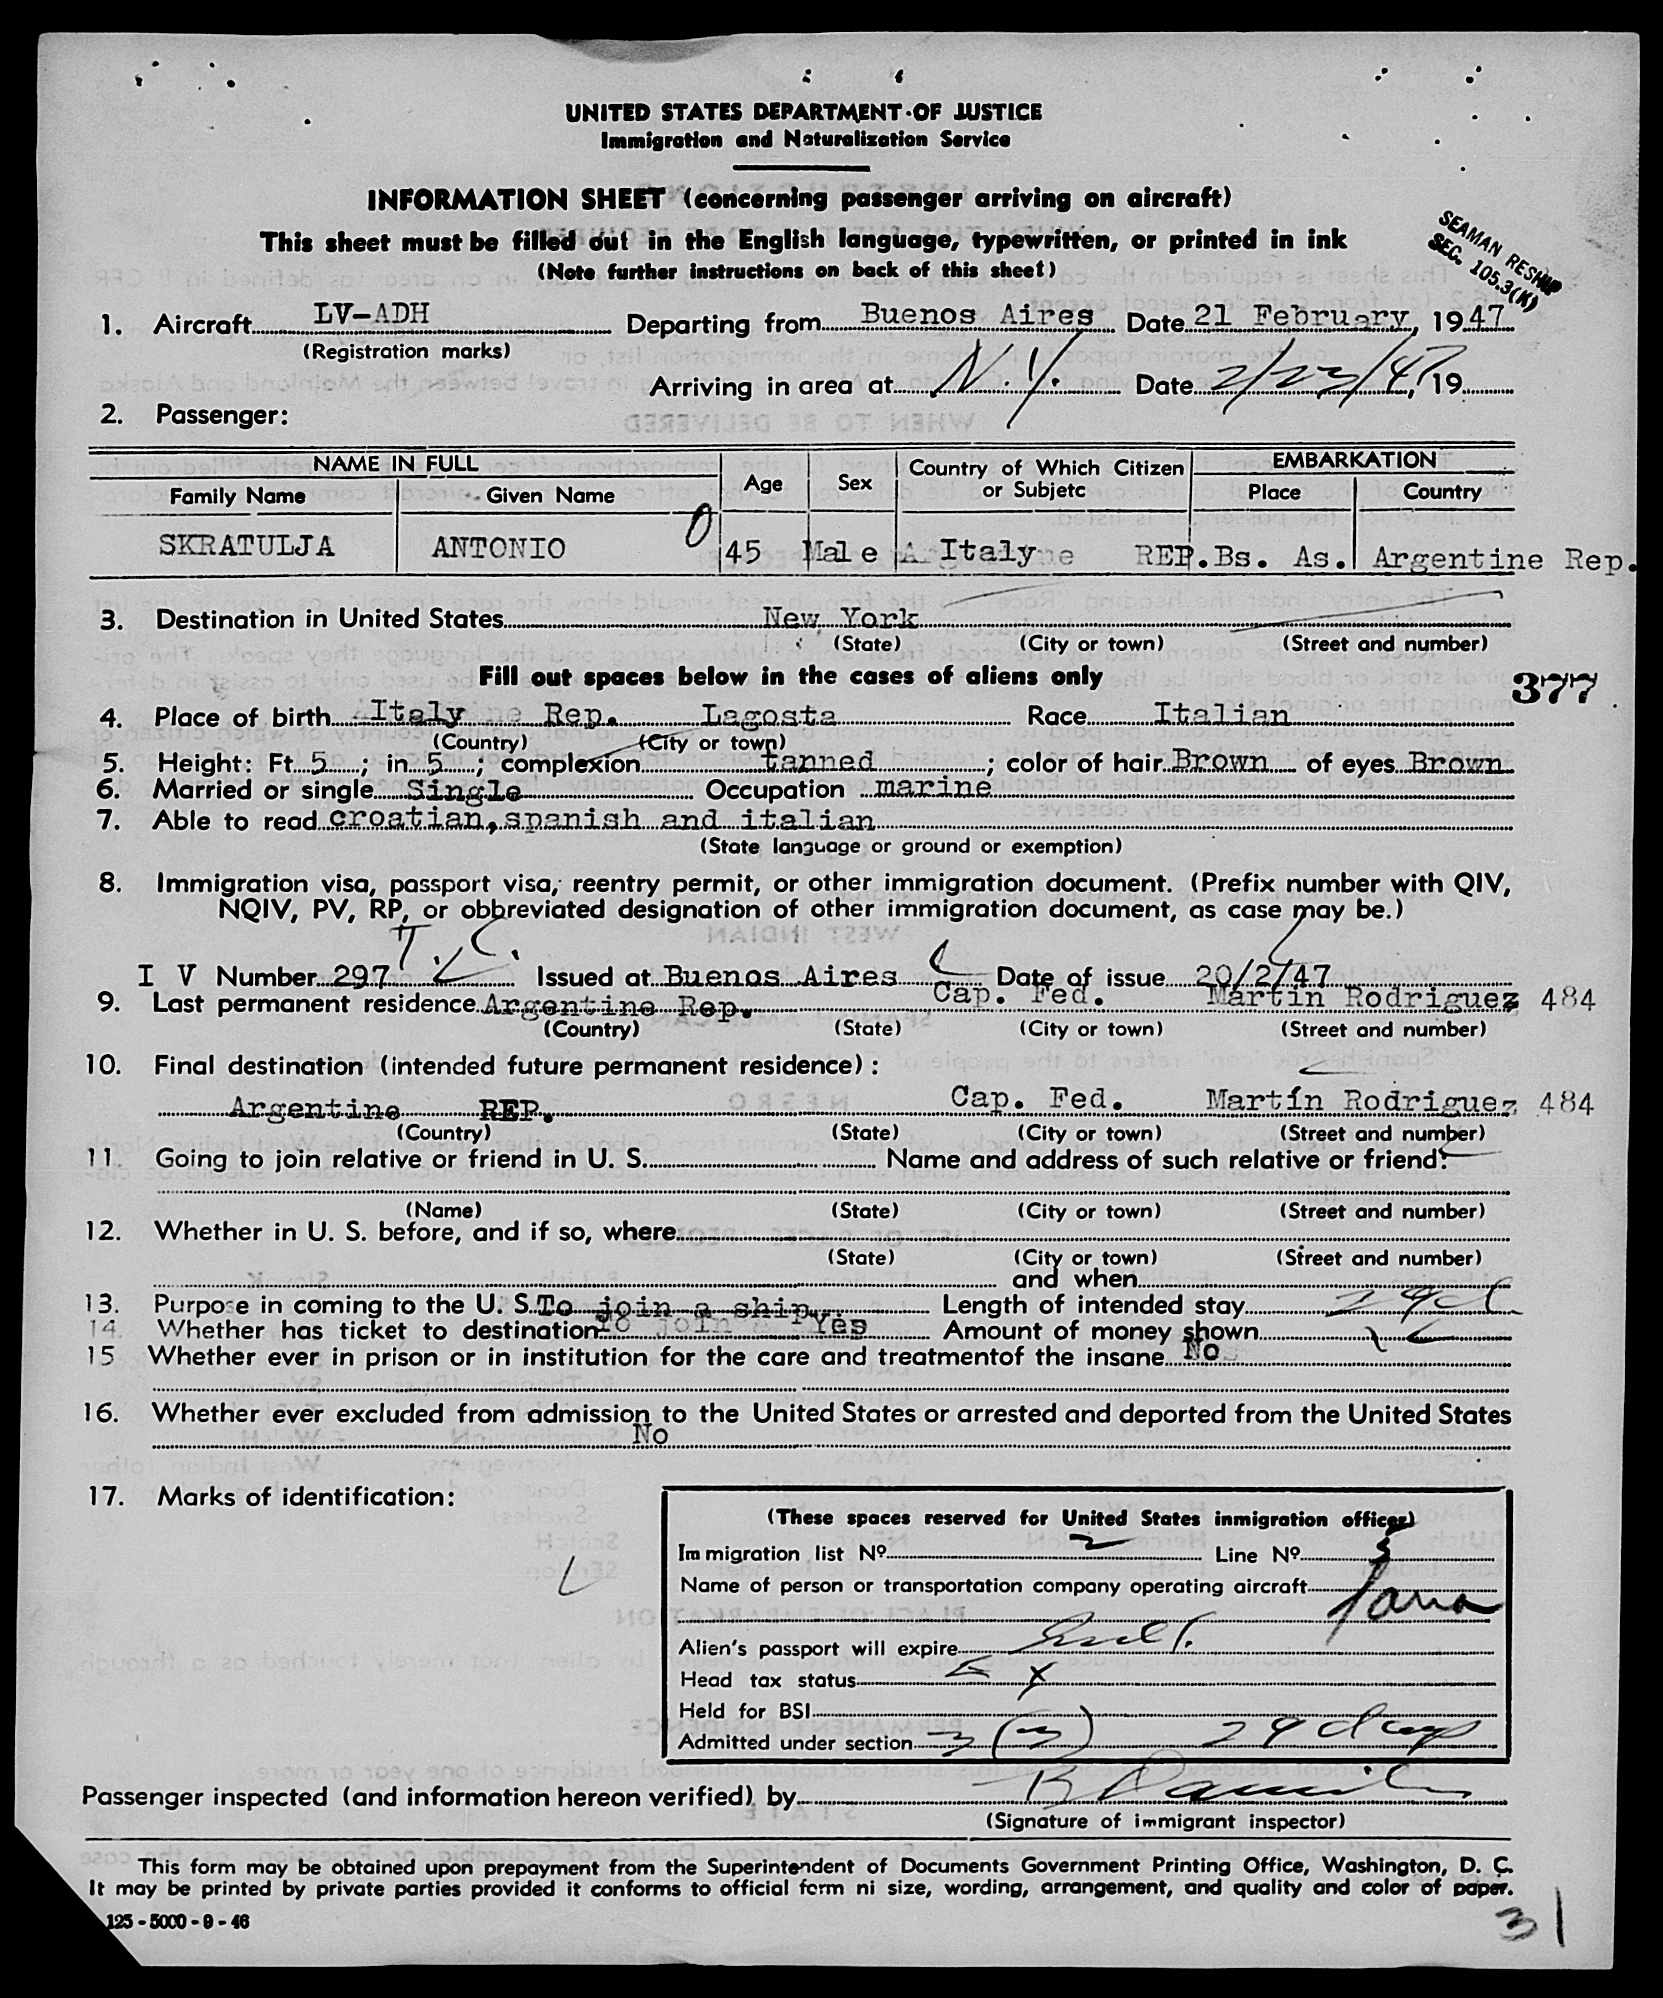 UNITED STATES DEPARTMENT OF JUSTICE
Immigration and Naturalization Service
INFORMATION SHEET (concerning passenger arriving on aircraft)
This sheet must be filled out in the English language, typewritten, or printed in ink
(Note further instructions on back of this sheet)
SEAMAN RESHIP
SEC. 105.3(K)
1. Aircraft LV-ADH Departing from Buenos Aires Date 21 February, 1947
(Registration marks)
Arriving in area at N.Y. Date 2/23/47, 19
2. Passenger:
NAME IN FULL Age Sex Country of Which Citizen or Subjetc EMBARKATION
Family Name Given Name Place Country
SKRATULJA ANTONIO 0 45 Male Italy REP. Bs. As. Argentine Rep.
3. Destination in United States New York
(State) (City or town) (Street and number)
Fill out spaces below in the cases of aliens only
377
4. Place of birth Italy Rep. Lagosta Race Italian
(Country) (City or town)
5. Height: Ft. 5; in 5; complexion tanned; color of hair Brown of eyes Brown
6. Married or single Single Occupation marine
7. Able to read croatian, spanish and italian
(State language or ground or exemption)
8. Immigration visa, passport visa, reentry permit, or other immigration document. (Prefix number with QIV,
NQIV, PV, RP, or obbreviated designation of other immigration document, as case may be.)
I V Number 297 Issued at Buenos Aires Date of issue 20/2/47
9. Last permanent residence Argentine Rep. Cap. Fed. Martín Rodriguez 484
(Country) (State) (City or town) (Street and number)
10. Final destination (intended future permanent residence):
Argentine REP. Cap. Fed. Martín Rodriguez 484
(Country) (State) (City or town) (Street and number)
11. Going to join relative or friend in U. S. Name and address of such relative or friend:
(Name) (State) (City or town) (Street and number)
12. Whether in U. S. before, and if so, where
(State) (City or town) (Street and number)
and when
13. Purpose in coming to the U. S. To join a ship. Length of intended stay 29d
14. Whether has ticket to destination Yes Amount of money shown
15 Whether ever in prison or in institution for the care and treatmentof the insane No
16. Whether ever excluded from admission to the United States or arrested and deported from the United States
No
17. Marks of identification:
(These spaces reserved for United States inmigration officer)
Immigration list Nº 2 Line Nº 3
Name of person or transportation company operating aircraft
Alien's passport will expire
Head tax status
Held for BSI
Admitted under section 3 (3) 29 days
Passenger inspected (and information hereon verified) by
(Signature of immigrant inspector)
This form may be obtained upon prepayment from the Superintendent of Documents Government Printing Office, Washington, D. C.
It may be printed by private parties provided it conforms to official form ni size, wording, arrangement, and quality and color of paper.
125 - 5000 - 9 - 46
31